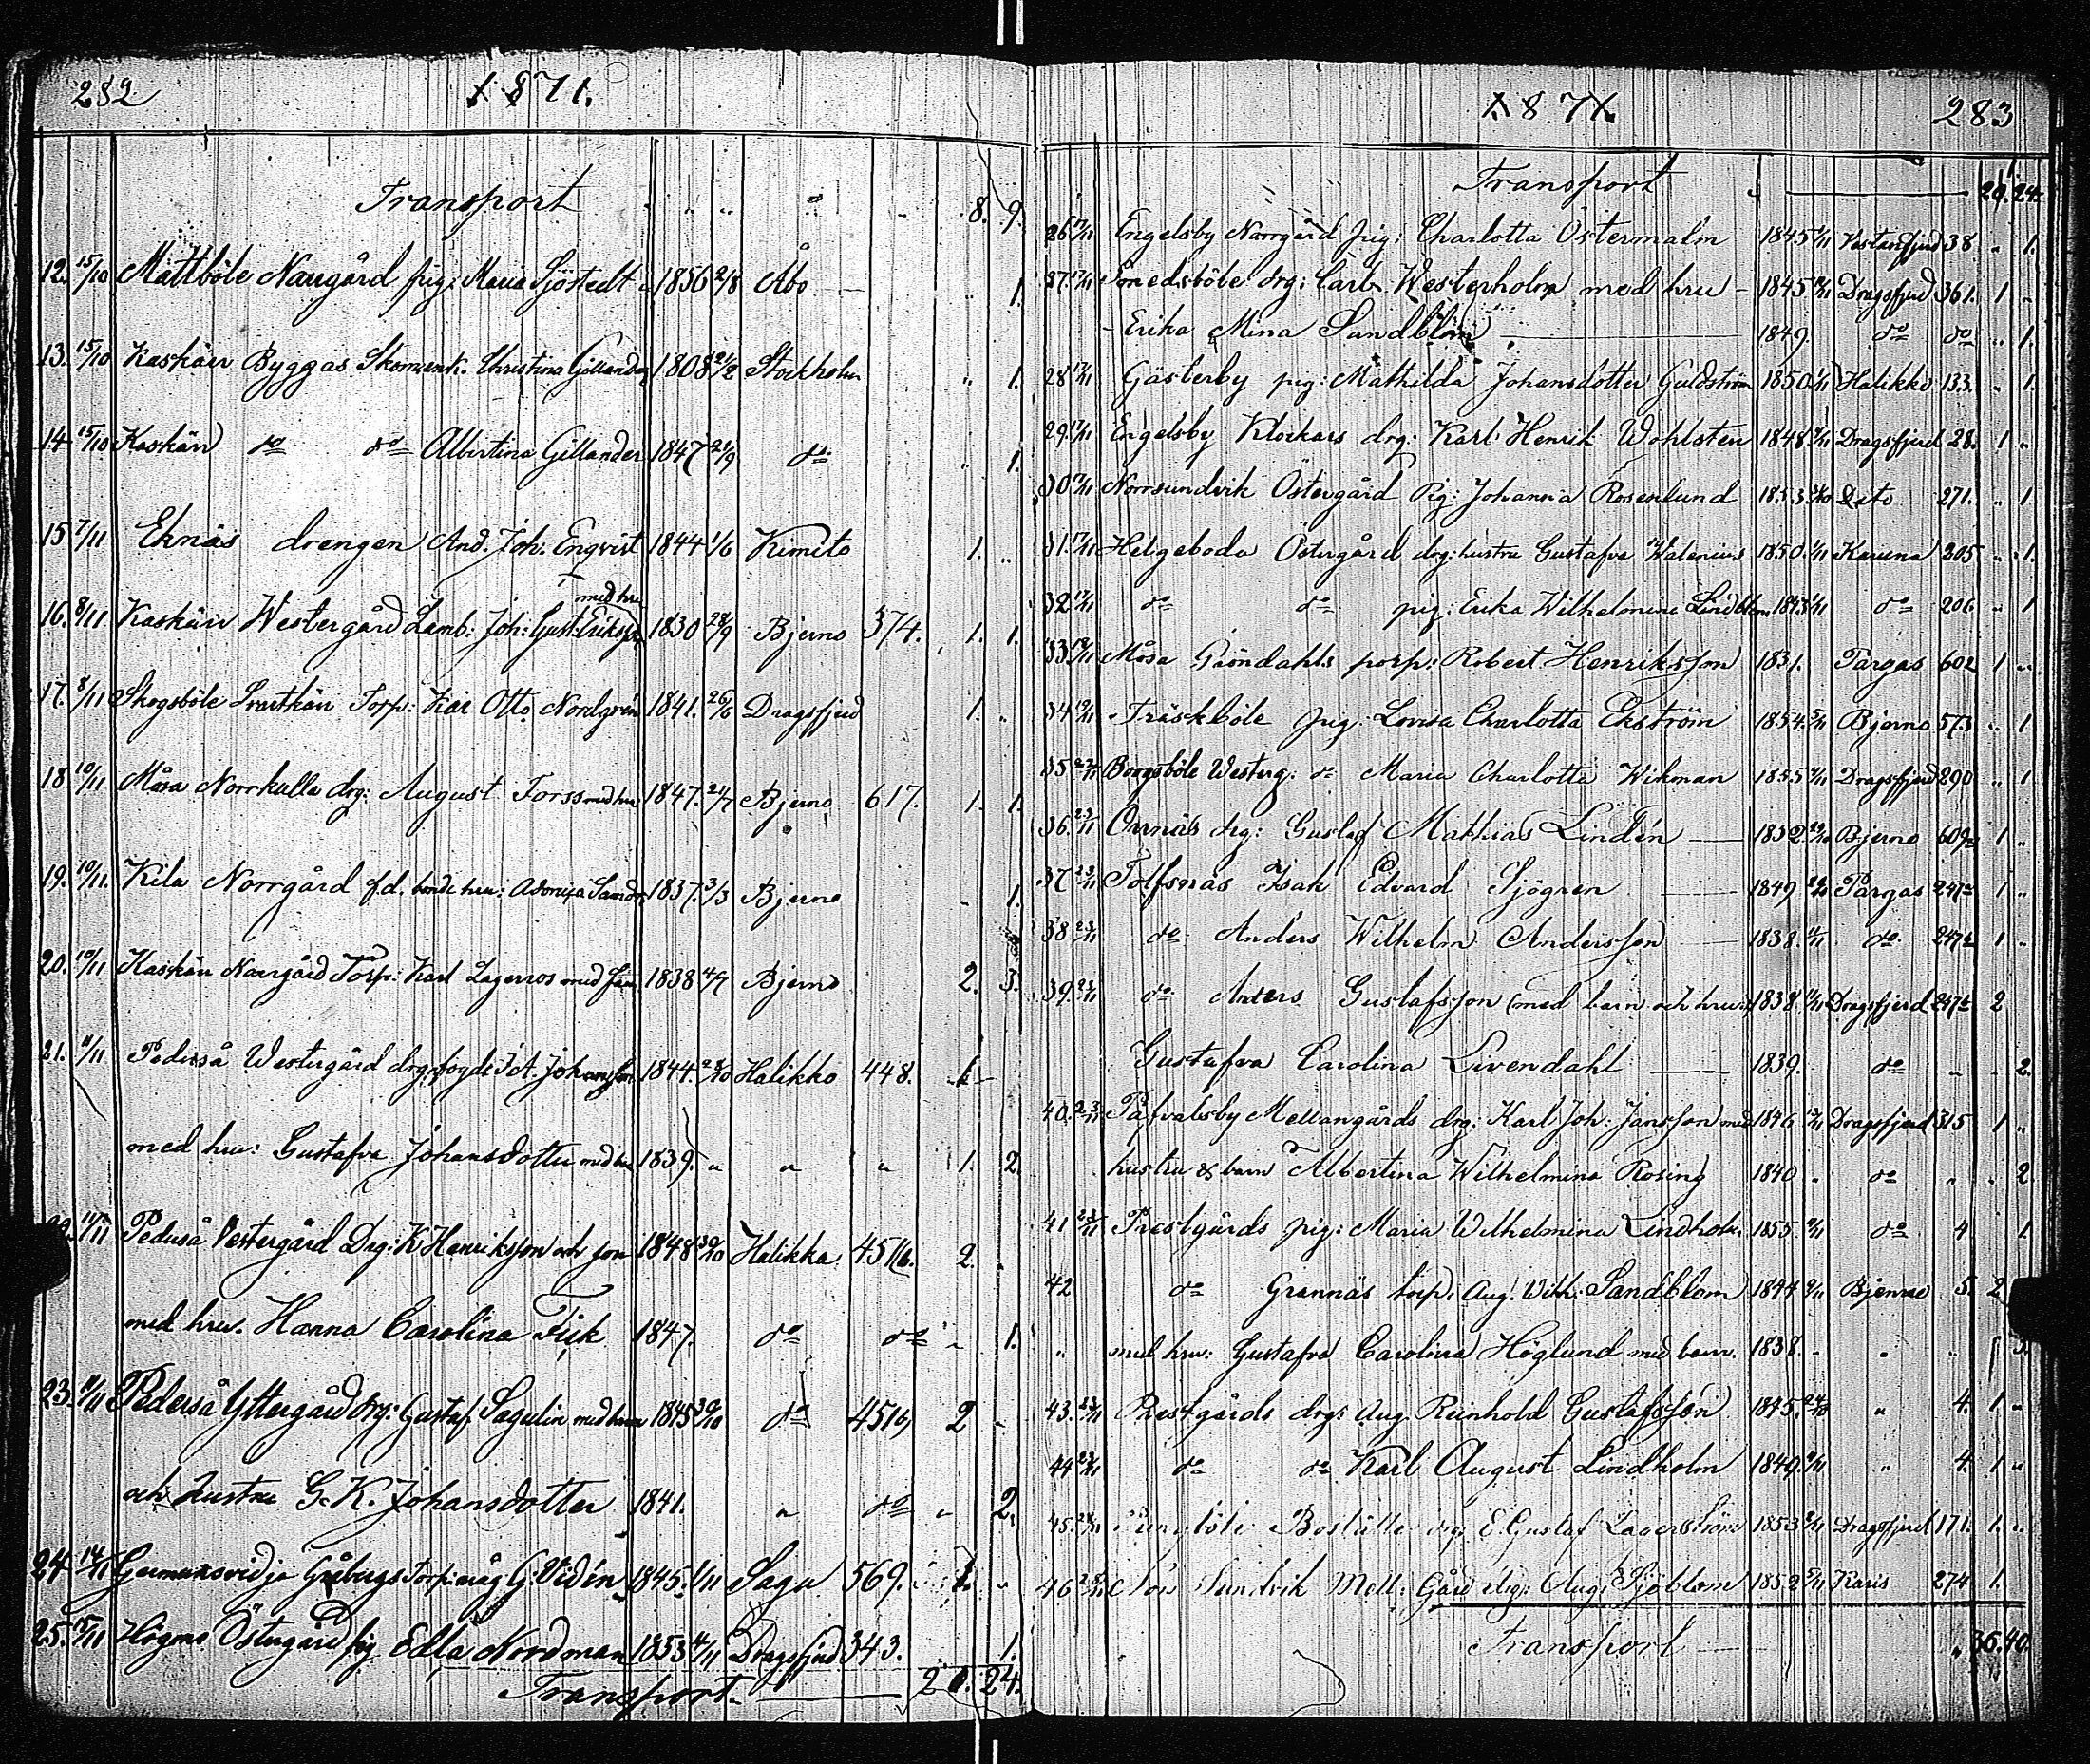 282 1871.
Transport " " " " " 8. 9.
12. 15/10 Mattböle Norrgård pig: Maria Sjöstedt 1856 2/8 Åbo " 1.
13. 15/10 Kaskärr Byggas Christina Gillander 1808 21/2 Stockholm " 1.
14 15/10 Kaskärr do do Albertina Gillander 1847 21/9 do " 1.
15 7/11 Eknäs drengen And. Joh. Enqvist 1844 1/6 Kimito 1. "
med hru
16. 8/11 Kaskärr Westergård Lamb: Joh: Gust: Eriksson 1830 28/9 Bjerno 374. 1. 1.
17. 8/11 Skogsböle Torp: Kar Otto Nordgrén 1841. 26/6 Dragsfjerd 1. "
18 10/11 Måsa Norrkulla drg: August Forss med hru 1847. 21/7 Bjerno 617. 1. 1.
19. 10/11. Kila Norrgård f.d. bonde hru: 1837. 3/3 Bjerno " 1.
20. 10/11 Kaskärr Norrgård Torp: Karl Lagerros med fam 1838 4/7 Bjerno 2. 3.
21. 11/11 Pederså Westergård drg: fogde J A. Johansson 1844. 28/10 Halikko 448. 1
med hru: Gustafva Johansdotter med 1839. " " " 1. 2.
11/11 Pederså Vestergård Drg: K Henriksson och son 1848 30/10 Halikko 451/6. 2.
med hru. Hanna Carolina 1847. do do " 1.
23. 11/11 Pederså Yttergård drg: Gustaf Sagulin med barn 1845 30/10 do 451/6 2 "
och hustru G. K. Johansdotter 1841. " do " 2.
24 14/11 Torp: G. Vidén 1845. 1/11 Sagu 569. 1. "
25. 15/11 Högmo Östergård pig Edla Nordman 1853 4/11 Dragsfjerd 343. 1.
Transport. 20. 24.
1871. 283
Transport 20. 24.
26 17/11 Engelsby Norrgård pig: Charlotta Östermalm 1845 1/11 Vestanfjerd 38 " 1.
27. 17/11 Smedsböle drg: Carl Westerholm med hru 1845 Dragsfjerd 361. 1 "
Erika Mina Sandblom 1849. do do " 1.
28 17/11 Gästerby pig: Mathilda Johansdotter Guldström 1850. 1/11 Halikko 133. " 1.
29. 17/11 Engelsby Klockars drg: Karl Henrik Wohlsten 1848. Dragsfjerd 28. 1 "
30 17/11 Norrsundvik Östergård Pig: Johanna Rosenlund 1853 Dito 271. " 1.
31. 17/11 Helgeboda Östergård drg: hustru Gustafva Walenius 1850. 1/11 Karuna 205 " 1.
32 17/11 do do pig: Erika Wilhelmina Lindblom 1843 1/11 do 206 " 1
33 18/11 Måsa Gröndahls porp: Robert Henriksson 1831. Pargas 602 1 "
34 19/11 Träskböle pig: Lovisa Charlotta Ekström 1854. 5/11 Bjerno 573 " 1
35 22/11 Boggsböle Westerg: do Maria Charlotta Wikman 1855 Dragsfjerd 290 " 1
36. 23/11 Ornnäs drg: Gustaf Mathias Lindén 1852 29/10 Bjerno 609 1 "
37 23/11 Tolfsnäs Isak Edvard Sjögren 1849 Pargas 247 1 "
38 23/11 do Anders Wilhelm Andersson 1838. do 247 1 "
39. 23/11 do Anders Gustafsson med barn och hru: 1838. Dragsfjerd 247 2
Gustafva Carolina Livendahl 1839. do " " 2.
40. 23/11 Påfvalsby Mellangårds drg: Karl Joh: Jansson med 1846 Dragsfjerd 315 1 "
hustru & barn Albertina Wilhelmina Rosing 1840 " do " " 2
41 23/11 Prestgårds pig: Maria Wilhelmina Lindholm 1855. do 4 1.
42 do Grannäs torp: Aug. Wilh: Sandblom 1844 Bjerno 5. 2
" med hru: Gustafva Carolina Höglund med barn. 1838. " "
43. 23/11 Prestgårds drg: Aug Reinhold Gustafsson 1845. " 4. 1 "
44 23/11 do do Karl August Lindholm 1849 " 4. 1 "
45. Boställe drg E. Gustaf Lagerström 1853 Dragsfjerd 171. 1. "
46 Nor Sundvik Mell: Gård drg: Aug: Sjöblom 1852 Karis 274 1.
Transport " 36. 40.